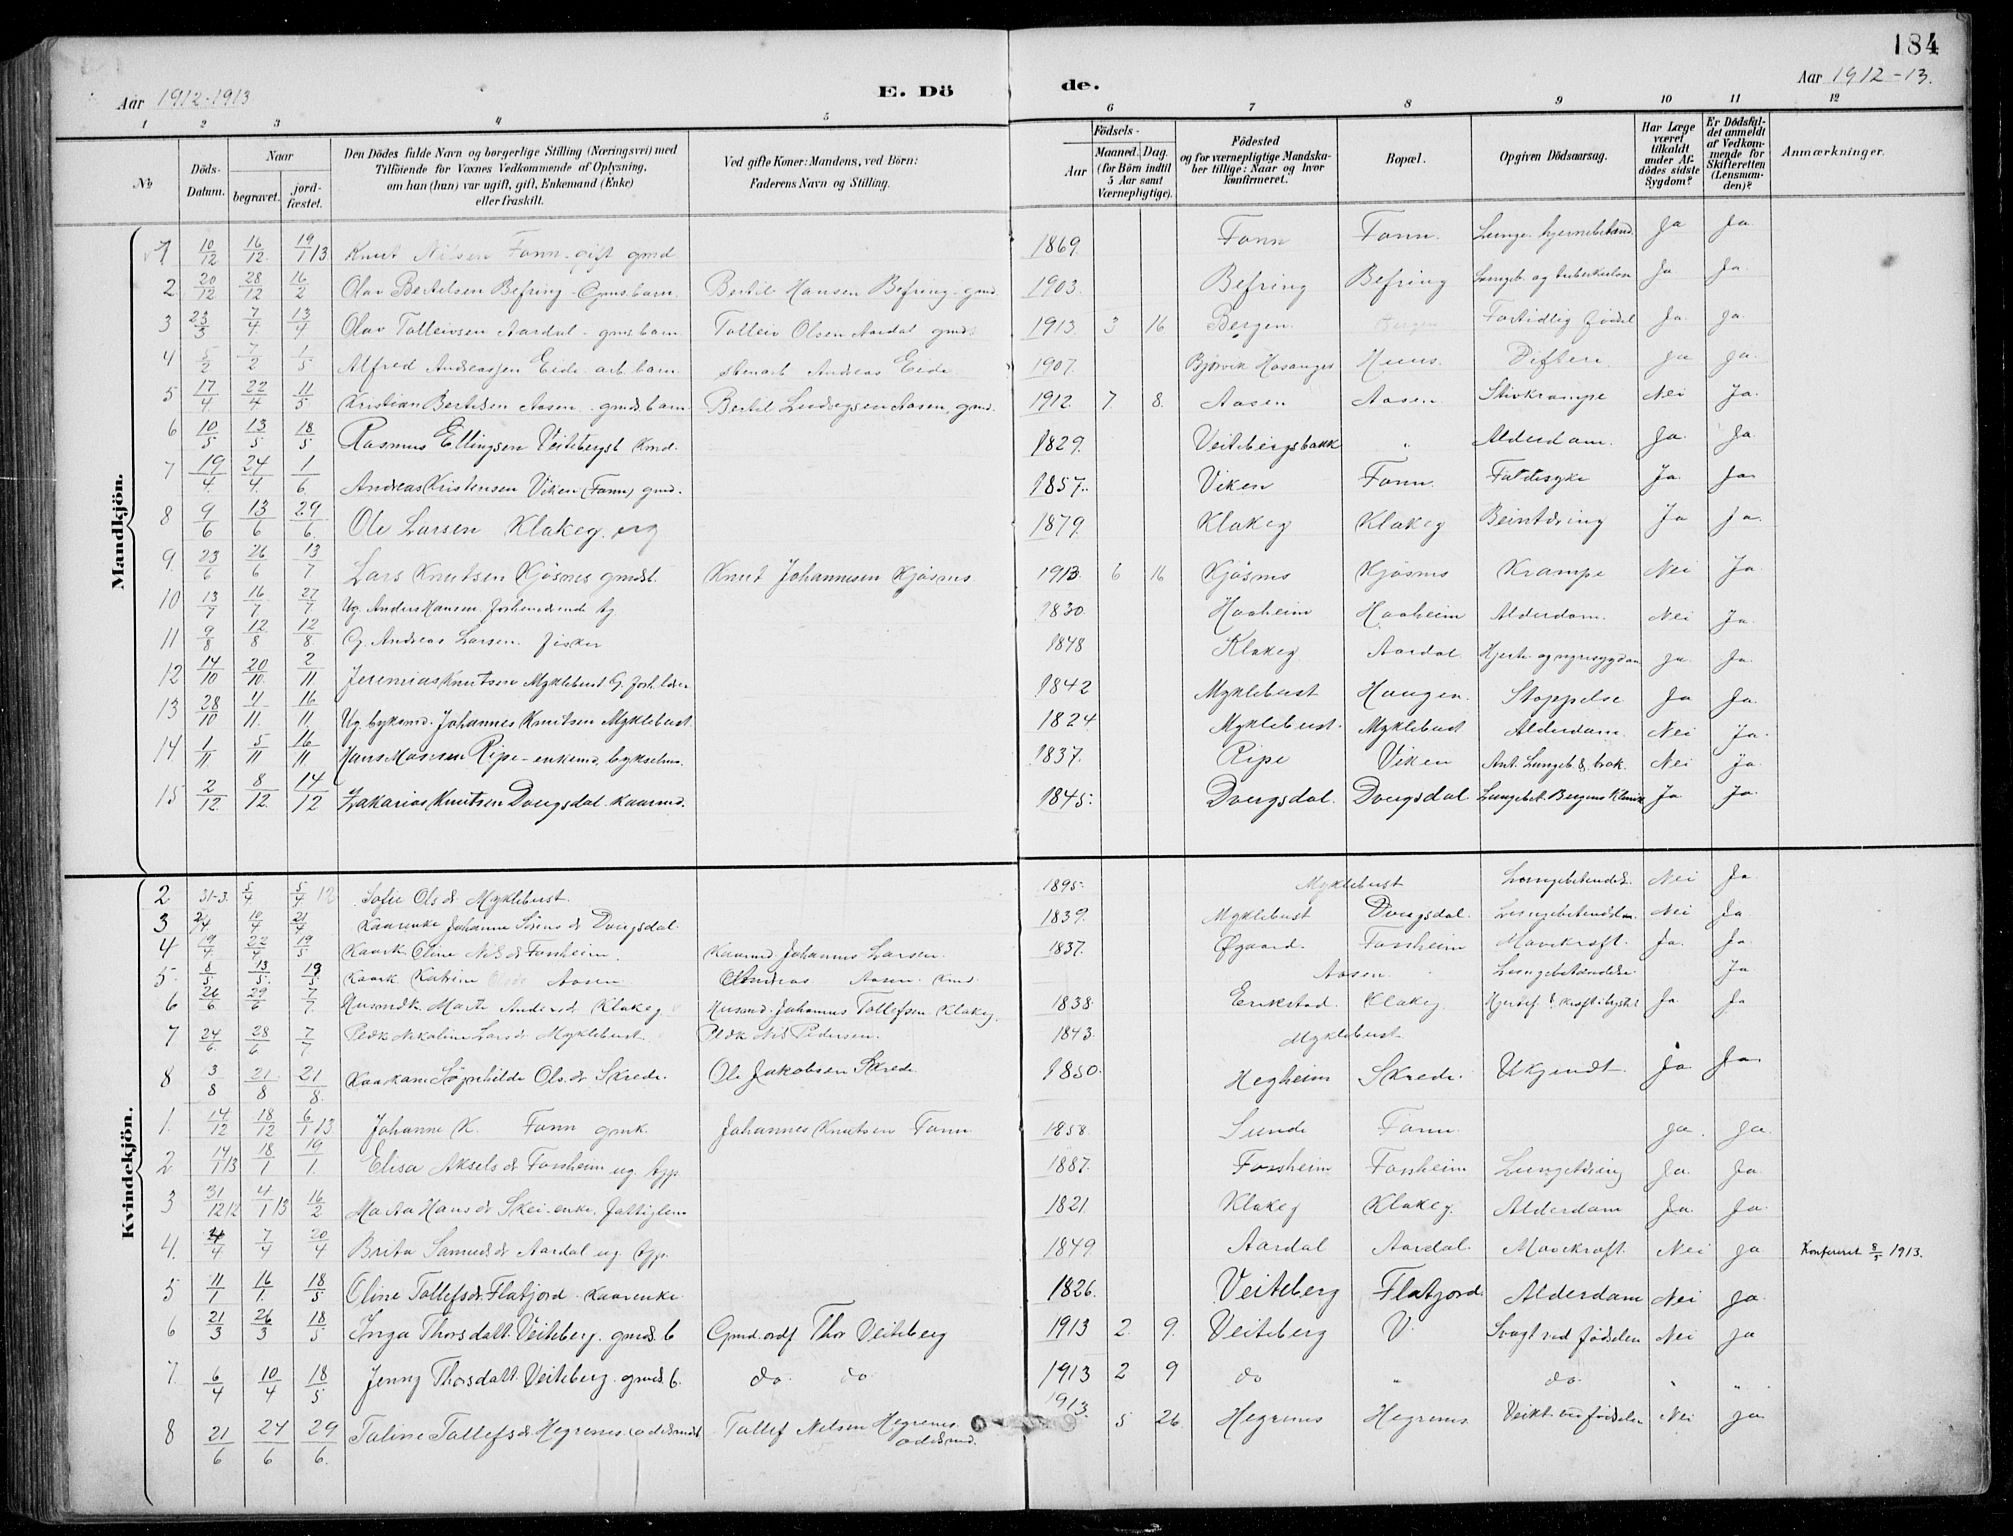 184
Aar 1912-1913
E. Dö
de.
Aar 1912-13.
1 2 3 4 5 6 7 8 9 10 11 12
No
Döds-Datum.
Naar
begravet.
jord-fæstet.
Den Dödes fulde Navn og borgerlige Stilling (Næringsvei) med
Tilföiende for Voxnes Vedkommende af Oplysning,
om han (hun) var ugift, gift, Enkemand (Enke)
eller fraskilt.
Ved gifte Koner: Mandens, ved Börn:
Faderens Navn og Stilling.
Födsels-
Aar
Maaned. Dag.
(for Börn indtil
5 Aar samt
Værnepligtige).
Födested
og for værnepligtige Mandska-
ber tillige: Naar og hvor
konfirmeret.
Bopæl.
Opgiven Dödsaarsag.
Har Læge
været
tilkaldt
under Af-
dödes sidste
Sygdom?
Er Dödsfal-
det anmeldt
af Vedkom-
mende for
Skifteretten
(Lensman-
den)?
Anmærkninger.
Mandkjön.
1 10/12 16/12 19/1 13 Knut Nilsen Fonn gift gmd 1869 Fonn Fonn. Lunge Ja Ja
2 20/12 28/12 16/2 Olav Bertelsen Befring Gmdsbarn. Bertil Hansen Befring gmd. 1903. Befring Befring Lungeb. og tuberkulose Ja Ja.
3 23/3 7/4 13/4 Olav Tolleivsen Aardal gmdsbarn Tolleiv Olsen Aardal gmd 1913. 3 16 Bergen. Bergen Fortidlig födsel Ja Ja.
4 5/2 7/2 1/5 Alfred Andreassen Eide arb. barn Andreas Eide 1907. Bjørvik Hosanger Huus. Difteri Ja Ja.
5 17/4 22/4 11/5 Kristian Bertilsen Aasen gmdsbarn Bertil Ludvigsen Aasen, gmd. 1912. 7 8. Aasen Aasen Stivkrampe Nei Ja.
6 10/5 13/5 18/5 Rasmus Ellingsen Veitebergsb Kmd. 1829. Veitebergsbakk " Alderdom. Ja Ja.
7 19/4 24/4 1/6 Andreas Kristensen Viken (Fonn) gmd. 1857. Viken Fonn Faldesyke Ja Ja
8 9/6 13/6 29/6 Ole Larsen Klakeg. ug 1879. Klakeg Klakeg Beintæring Ja Ja.
9. 23/6 26/6 13/7 Lars Knutsen Kjøsnes gmdsb. Knut Johannesen Kjøsnes 1913. 6 16 Kjøsnes Kjøsnes Krampe Nei Ja.
10 13/7 16/7 27/7 Ug. Anders Hansen. 1830 Haaheim Haaheim Alderdom. Nei Ja.
11 9/8 12/8 12/8 G. Andreas Larsen. fisker 1848 Klakeg Aardal Hjerte og nyresygdom Ja Ja.
12 14/10 20/10 2/11 Jeremias Knutsen Myklebust G. 1842 Myklebust Haugen. Stoppelse Ja Ja.
13 28/10 4/11 16/11 Ug. bykmd. Johannes Knutsen Myklebust 1824 Myklebust. Myklebust Alderdom. Nei Ja.
14 1/11 5/11 16/11 Hans Monsen Ripe - enkemd, bykselmd. 1837. Ripe Viken Ant. Lungeb. & brok. Nei Ja.
15 2/12 8/12 14/12 Zakarias Knutsen Dvergsdal Kaarmd. 1845. Dvergsdal. Dvergsdal Lungebet. Bergens Klinik Ja Ja.
Kvindekjön.
2 31-3. 5/4 5/4 12 Sofie Olsdr Myklebust. 1895. Myklebust Lungebetændels. Nei Ja
3 10/4 21/4 Kaarenke Johanne Sørensdr Dvergsdal. 1839. Myklebust Dvergsdal. Lungebetændelse. Nei Ja
4 19/4 22/4 19/5 Kaark. Oline Nilsdr Forsheim. Kaarmd Johannes Larsen. 1837. Øgaard. Forsheim Mavekræft. Ja. Ja.
5. 8/5 13/5 19/5 Kaark Katrine Aasen Andreas Aasen. Kmd. Aasen. Lungebetændelse Ja
6 26/6 29/6 7/7 Husmdk. Marte Andersdr Klakeg Husmd. Johannes Tollefsen Klakeg. 1838. Erikstad. Klakeg. Ja. Ja
7 24/6 28/6 7/7 Nikoline Larsdr Myklebust. Nils Pedersen. 1843. Myklebust
8 3/8 21/8 21/8 Kaarkane Søgnhilde Olsdr Skrede. Ole Jakobsen Skrede 1850. Hegheim Skrede. Ukjendt. Ja Ja
1. 14/12 18/12 6/1 13 Johanne K. Fonn gmk. Johannes Knutsen Fonn 1858. Sunde Fonn. Ja. Ja.
2 14/1 13 18/1 19/1 Elisa Akselsdr Forsheim ug. 1887. Forsheim Forsheim Lungetæring Ja. Ja.
3 31/12 12 4/1 13 16/2 Marta Hansdr Skei. enke, fattiglem 1821 Klakeg Klakeg. Alderdom Ja. Ja.
4. 4/4 7/4 20/4 Brita Samuelsdr Aardal ug. 1849. Aardal Aardal. Mavekræft. Nei Ja Konfereret 8/5 1913.
5 11/1 16/1 18/5 Oline Tollefsdr. Flatjord. Kaarenke. 1826. Veiteberg Flatjord. Alderdom Nei Ja.
6 21/3 26/3 18/5 Inga Thorsdatt. Veiteberg. gmds. b Gmd. ordf Thor Veiteberg 1913 2. 9. Veiteberg V. Svagt ved fødselen Nei Ja
7 6/4 10/4 18/5 Jenny Thorsdatt. Veiteberg. gmds. b. do. do. 1913 2 9 do " do. " "
8 21/6 24/6 29/6. Taline Tollefsdr Hegrenes. Tollef Nilsen Hegrenes. 1913. 5 26 Hegrenes Hegrenes. Veikt ved fødselen Nei Ja